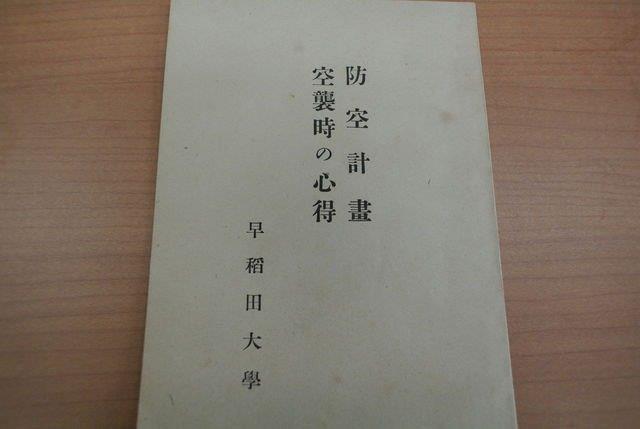 防空計畫
空襲時の心得
早稻田大學